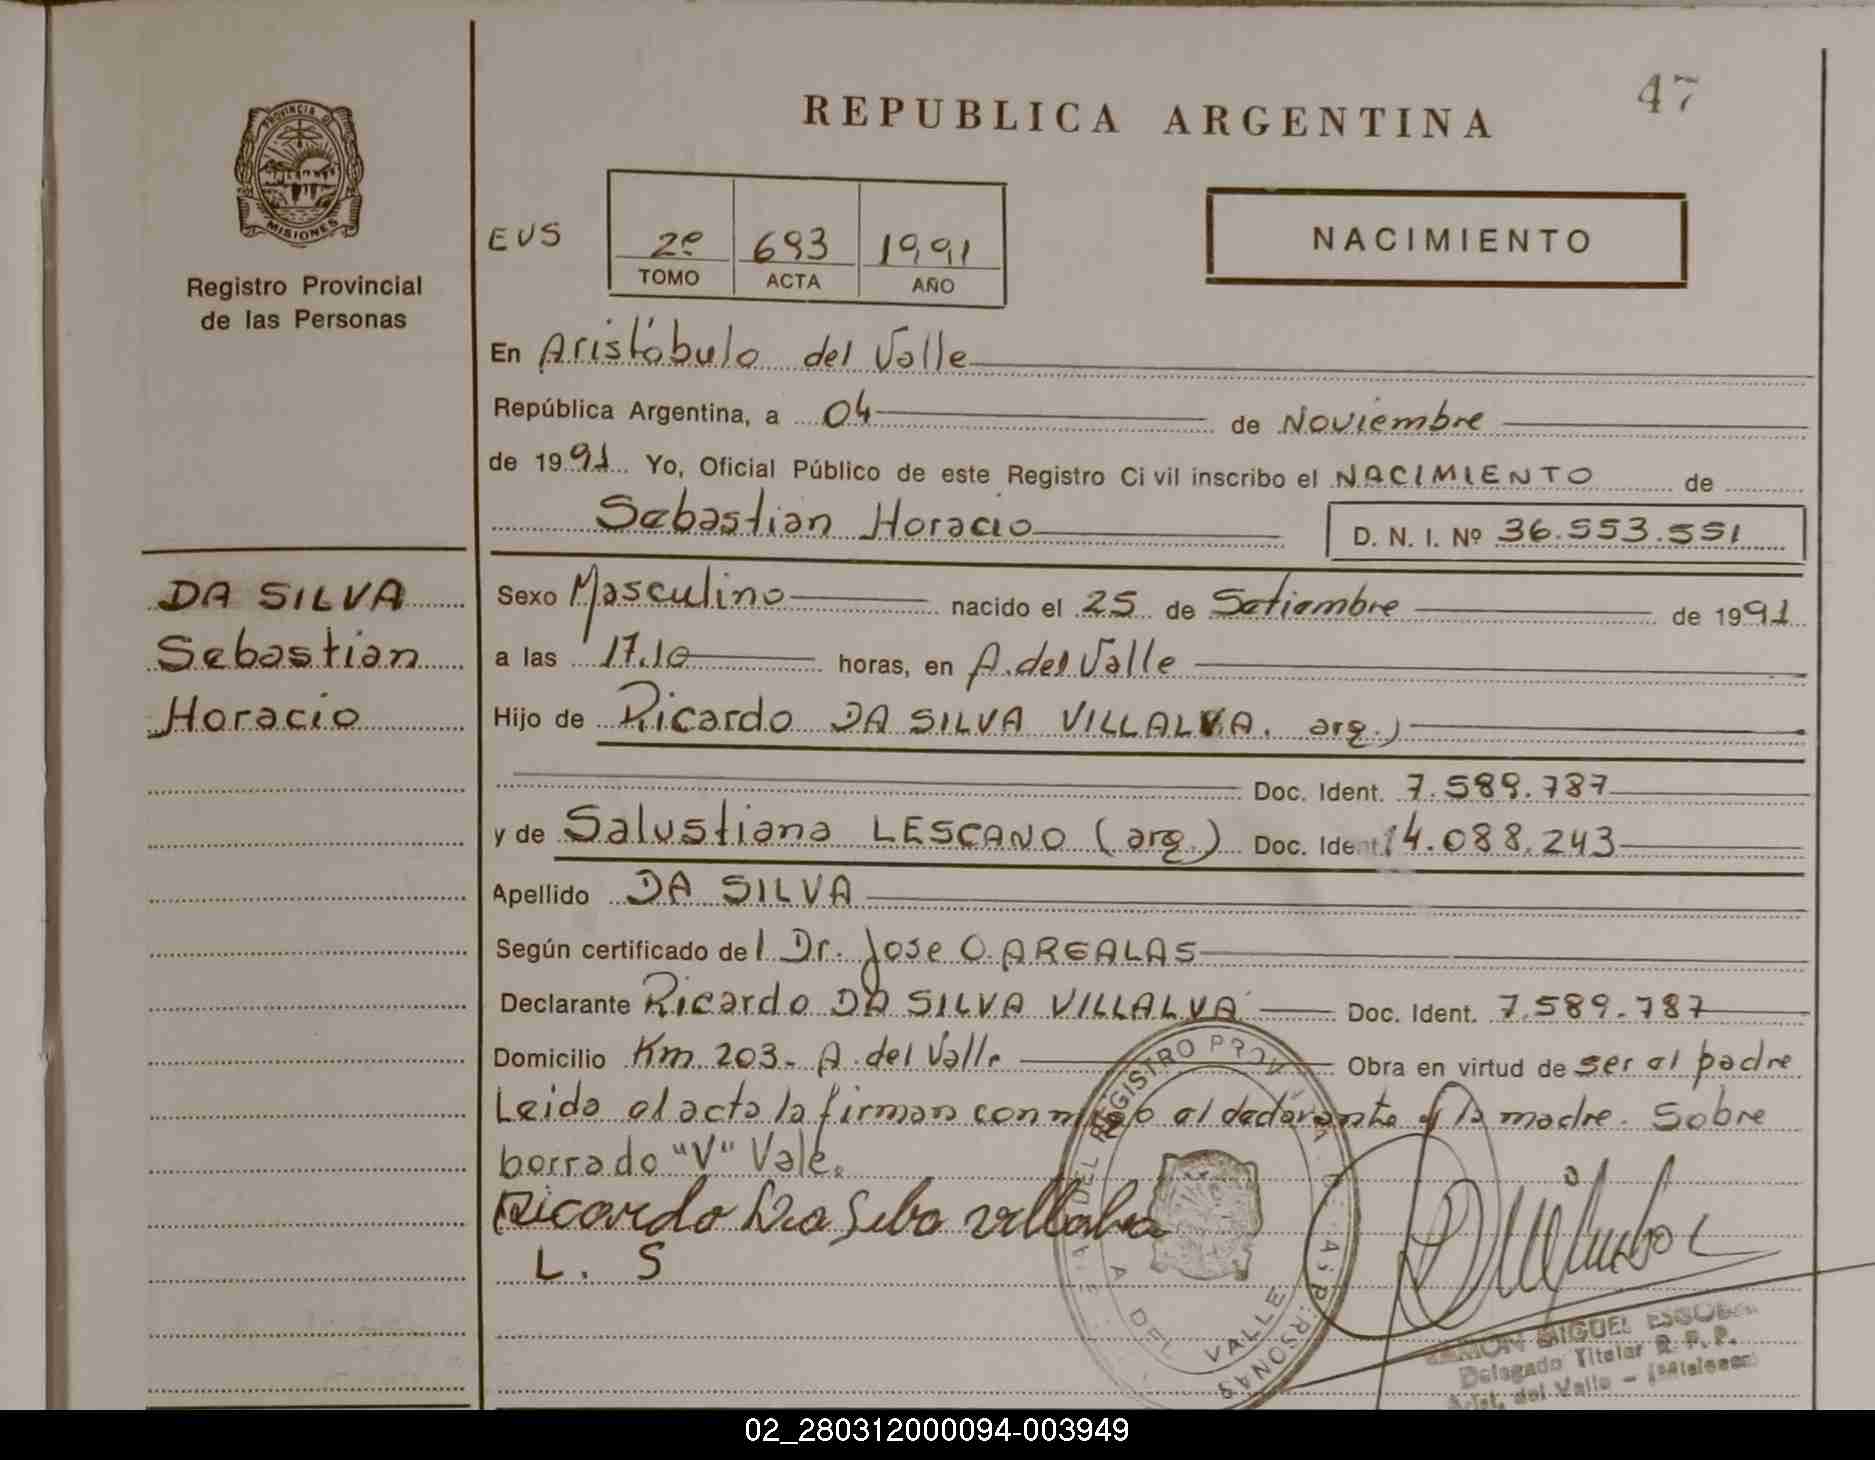 47
REPUBLICA ARGENTINA
PROVINCIA DE
MISIONES
Registro Provincial
de las Personas
EUS
2º 693 1991
TOMO ACTA AÑO
NACIMIENTO
En Aristóbulo del Valle
República Argentina, a 04 de Noviembre
de 1991 Yo, Oficial Público de este Registro Civil inscribo el NACIMIENTO de
Sebastian Horacio D. N. I. Nº 36.553.551
DA SILVA
Sebastian
Horacio
Sexo Masculino nacido el 25 de Setiembre de 1991
a las 17.10 horas, en A. del Valle
Hijo de Ricardo DA SILVA VILLALVA. arg.)
Doc. Ident. 7.589.787
y de Salustiana LESCANO (arg.) Doc. Ident. 14.088.243
Apellido DA SILVA
Según certificado del Dr. Jose O. AREALAS
Declarante Ricardo DA SILVA VILLALVA Doc. Ident. 7.589.787
Domicilio Km 203- A. del Valle Obra en virtud de ser el padre
Leida el acta la firman conmigo el declarante y la madre. Sobre
borrado "V" Vale.
Ricardo Da Silva Villalva
L. S
REGISTRO PROVINCIAL DE LAS PERSONAS
A DEL VALLE
RAMON MIGUEL ESCOBAR
Delegado Titular R. P. P.
Arist. del Valle - (Misiones)
02_280312000094-003949